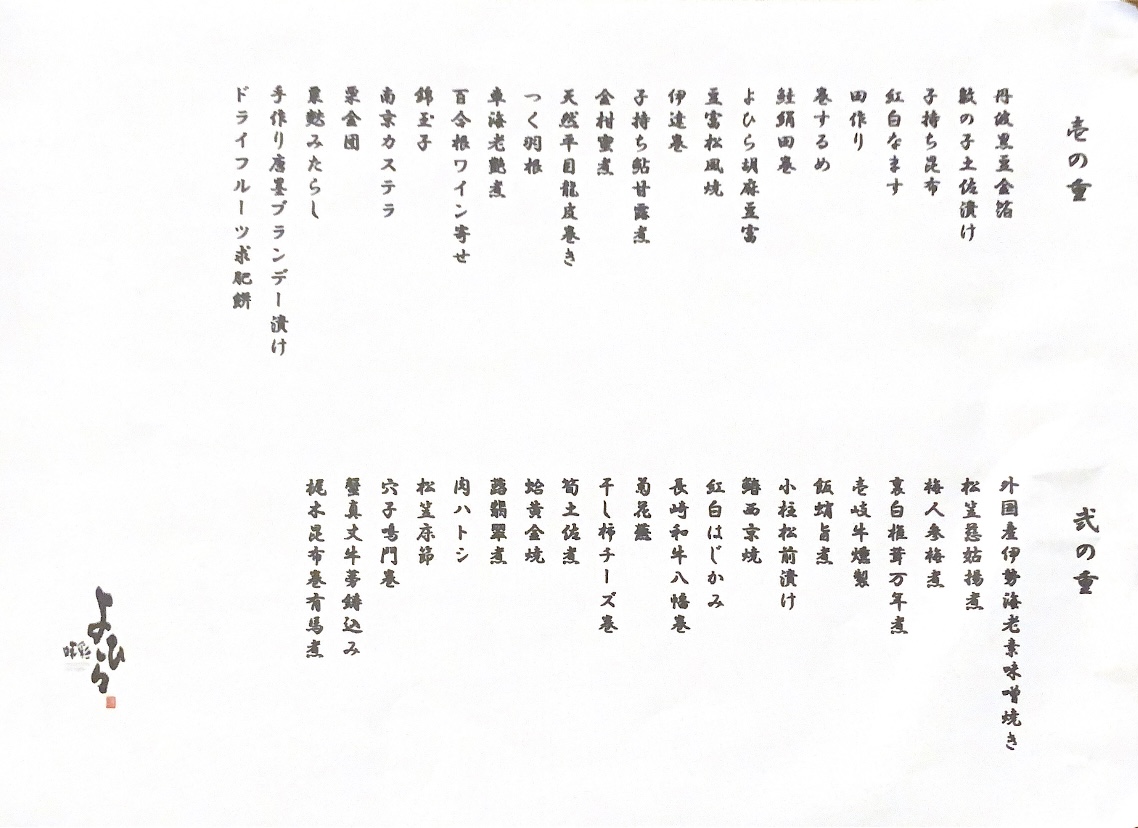 壱の重
丹波黒豆金箔
数の子土佐漬け
子持ち昆布
紅白なます
田作り
巻するめ
鮭絹田巻
よひら胡麻豆富
豆富松風焼
伊達巻
金柑蜜煮
子持ち鮎甘露煮
天然平目龍皮巻き
つく羽根
車海老艶煮
百合根ワイン寄せ
錦玉子
南京カステラ
栗金団
粟麩みたらし
手作り唐墨ブランデー漬け
ドライフルーツ求肥餅
弐の重
外国産伊勢海老素味噌焼き
松笠慈姑揚煮
梅人参梅煮
裏白椎茸万年煮
壱岐牛燻製
飯蛸旨煮
小柱松前漬け
鰆西京焼
紅白はじかみ
長崎和牛八幡巻
菊花蕪
干し柿チーズ巻
筍土佐煮
蛤黄金焼
蕗翡翠煮
肉ハトシ
松笠床節
穴子鳴門巻
蟹真丈牛蒡鋳込み
梶木昆布巻有馬煮
よひら
味彩